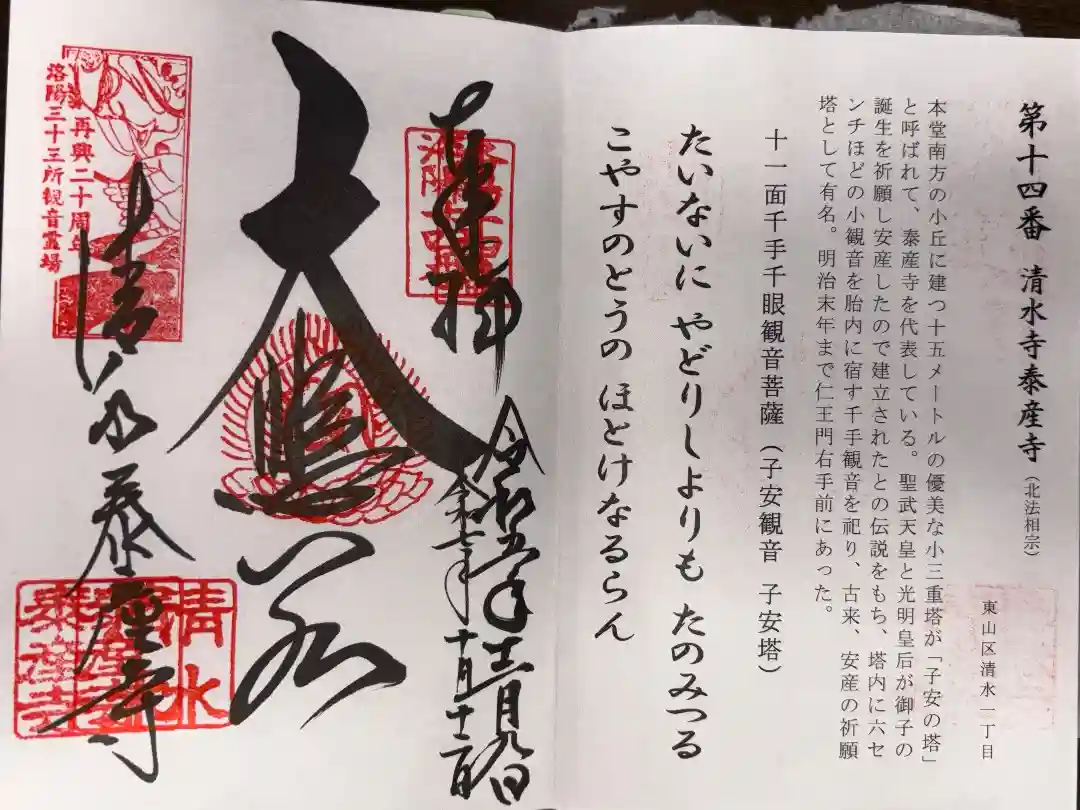 第十四番 清水寺泰産寺（北法相宗）
東山区清水一丁目
本堂南方の小丘に建つ十五メートルの優美な小三重塔が「子安の塔」
と呼ばれて、泰産寺を代表している。聖武天皇と光明皇后が御子の
誕生を祈願し安産したので建立されたとの伝説をもち、塔内に六セ
ンチほどの小観音を胎内に宿す千手観音を祀り、古来、安産の祈願
塔として有名。明治末年まで仁王門右手前にあった。
十一面千手千眼観音菩薩（子安観音 子安塔）
たいないに やどりしよりも たのみつる
こやすのとうの ほとけなるらん
奉拝
令和五年十一月九日
十月十二日
大悲閣
再興二十周年
洛陽三十三所観音霊場
清水泰産寺
清水
泰産寺